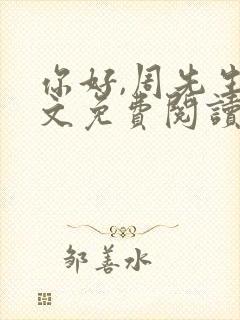 你好,周先生
文免費閱讀
邹善水